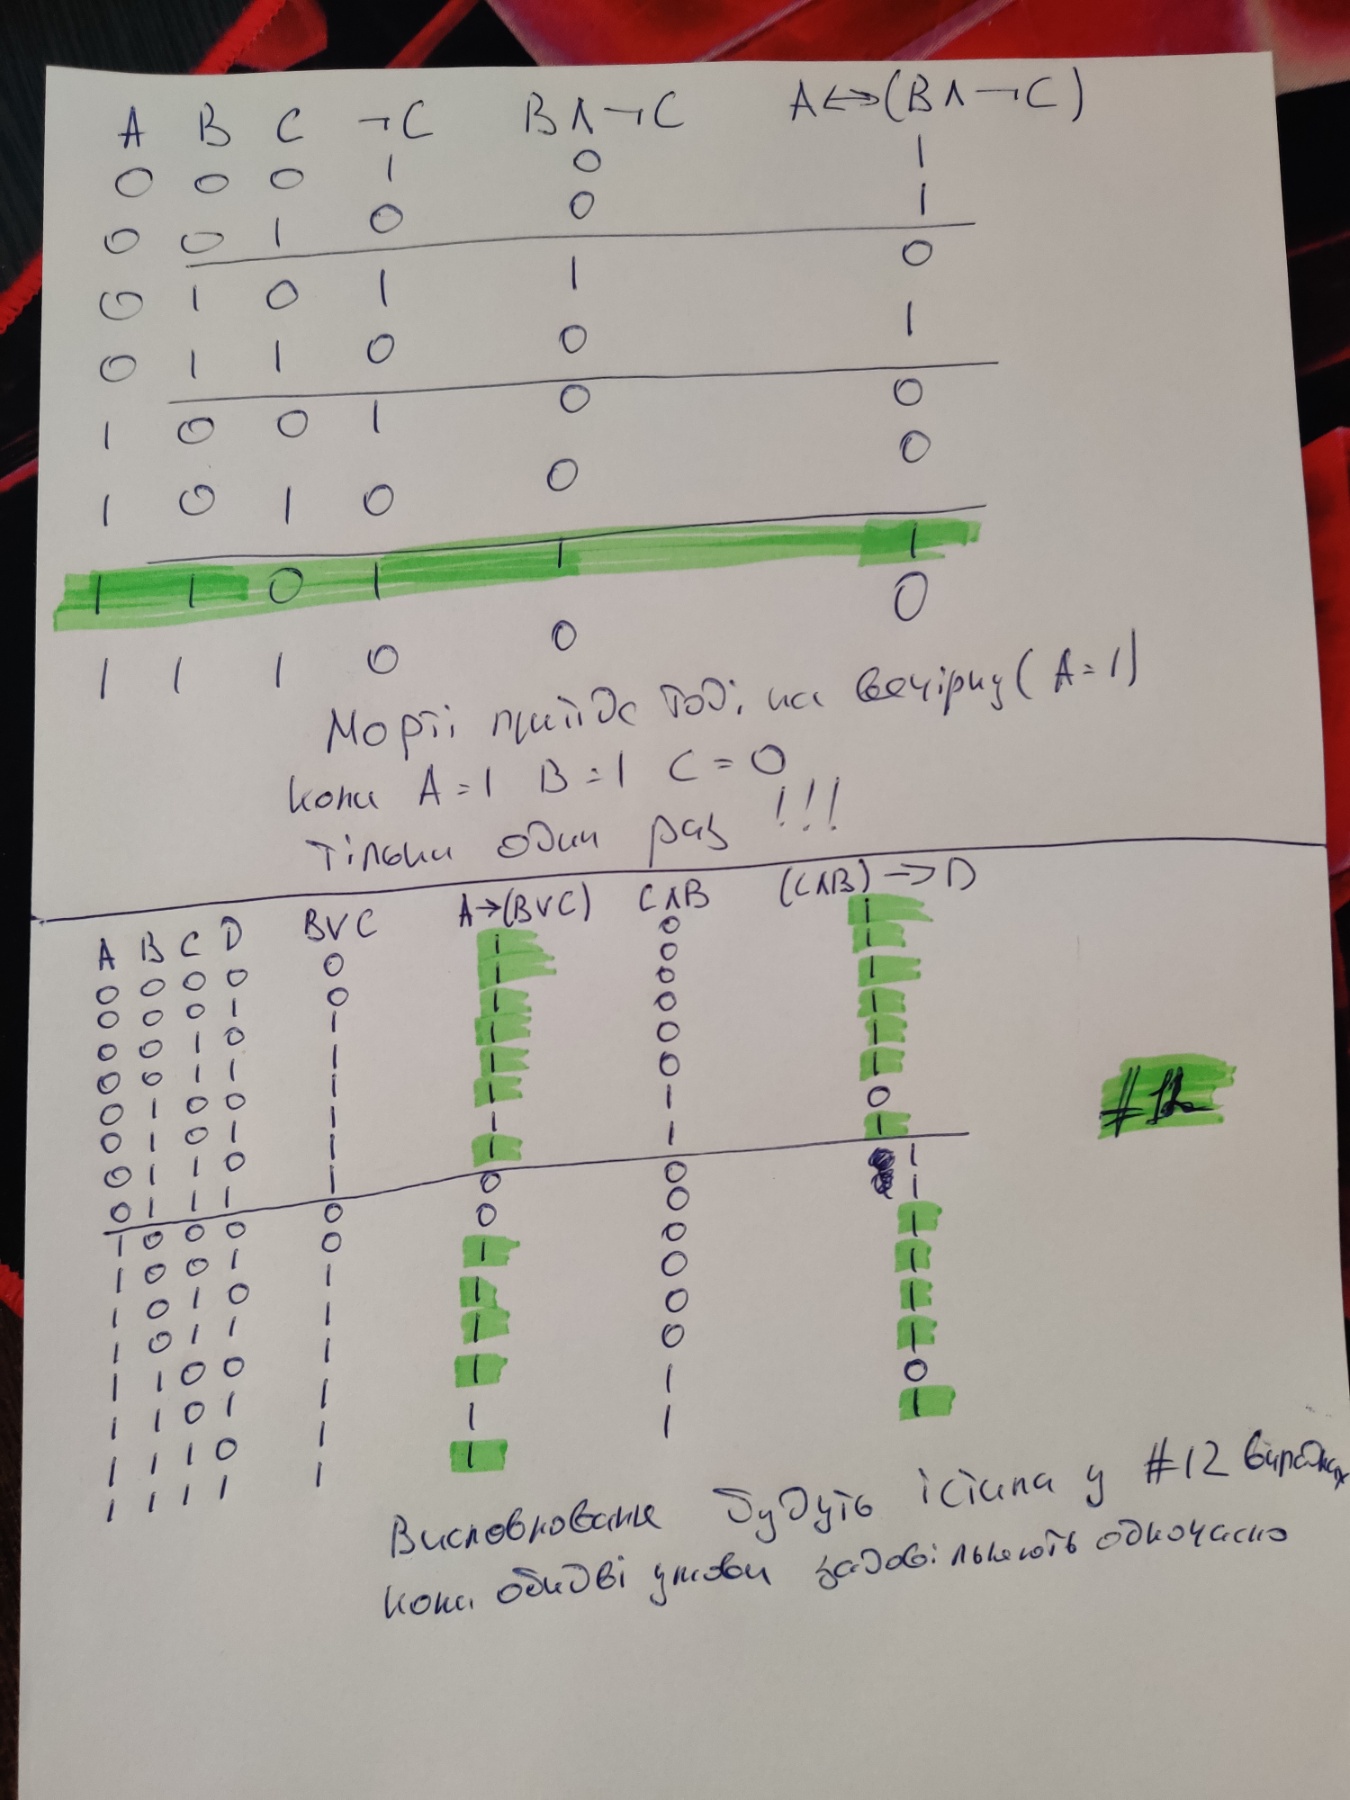 A B C ¬C B∧¬C A<=>(B∧¬C)
0 0 0 1 0 1
0 0 1 0 0 1
0 1 0 1 1 0
0 1 1 0 0 1
1 0 0 1 0 0
1 0 1 0 0 0
1 1 0 1 1 1
1 1 1 0 0 0
Морті прийде тоді на вечірку (A=1)
коли A=1 B=1 C=0
тільки один раз !!!
A B C D B∨C A→(B∨C) C∧B (C∧B)→D
0 0 0 0 0 1 0 1
0 0 0 1 0 1 0 1
0 0 1 0 1 1 0 1
0 0 1 1 1 1 0 1
0 1 0 0 1 1 0 1
0 1 0 1 1 1 0 1
0 1 1 0 1 1 1 0
0 1 1 1 1 1 1 1
1 0 0 0 0 0 0 1
1 0 0 1 0 0 0 1
1 0 1 0 1 1 0 1
1 0 1 1 1 1 0 1
1 1 0 0 1 1 0 1
1 1 0 1 1 1 0 1
1 1 1 0 1 1 1 0
1 1 1 1 1 1 1 1
#12
будуть істина у #12 виразах
коли обидві умови задовільнють одночасно